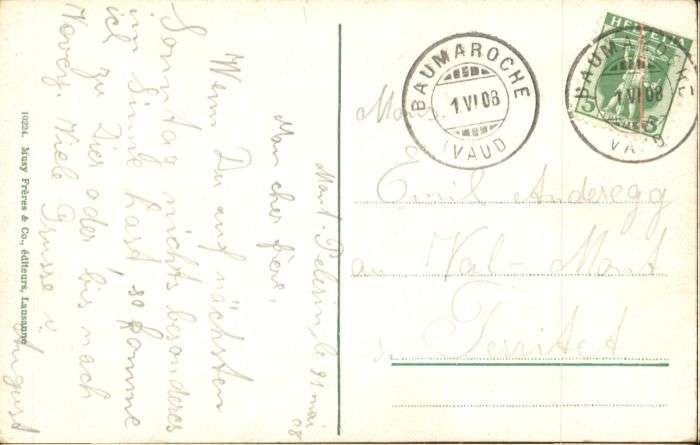 Mont-Pelerin le 31 mai
08
Mon cher frère,
Wenn Du auf nächsten
Sonntag nichts besonderes
im Sinne hast, so komme
ich zu Dier oder bis nach
Vevey. Viele Grüsse v.
August
10224. Musy Frères & Co., éditeurs, Lausanne
BAUMAROCHE
1 VI 08
(VAUD)
HELVETIA
5 5
BAUMAROCHE
1 VI 08
VAUD
Mons.
Emil Anderegg
au Val-Mont
s. Territet